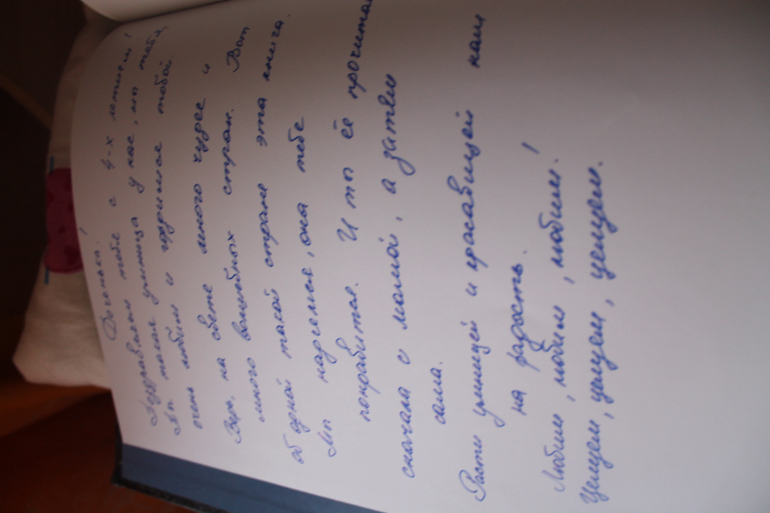 Доченька!
Поздравляем тебя с 4-х летием!
Ты такая умница у нас, мы тебя
очень любим и гордимся тобой.
Верь, на свете много чудес и
много волшебных стран. Вот
об одной такой стране эта книга.
Мы надеемся, она тебе
понравится. И ты её прочитаешь
сначала с мамой, а затем
сама.
Расти умницей и красавицей нам
на радость.
Любим, любим, любим!
Целуем, целуем, целуем.